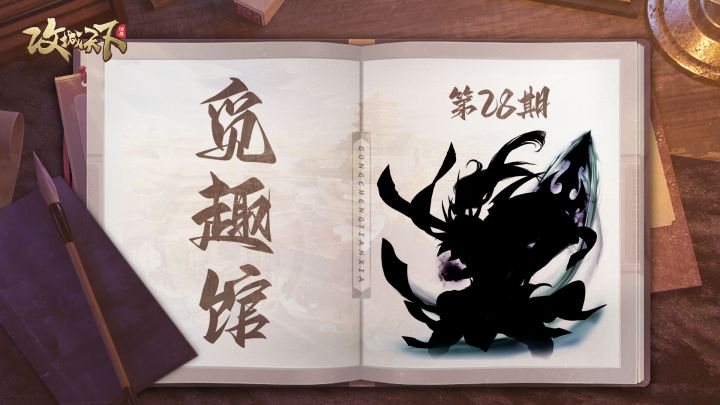 攻城天下
觅趣馆
GONGCHENGTIANXIA
第28期